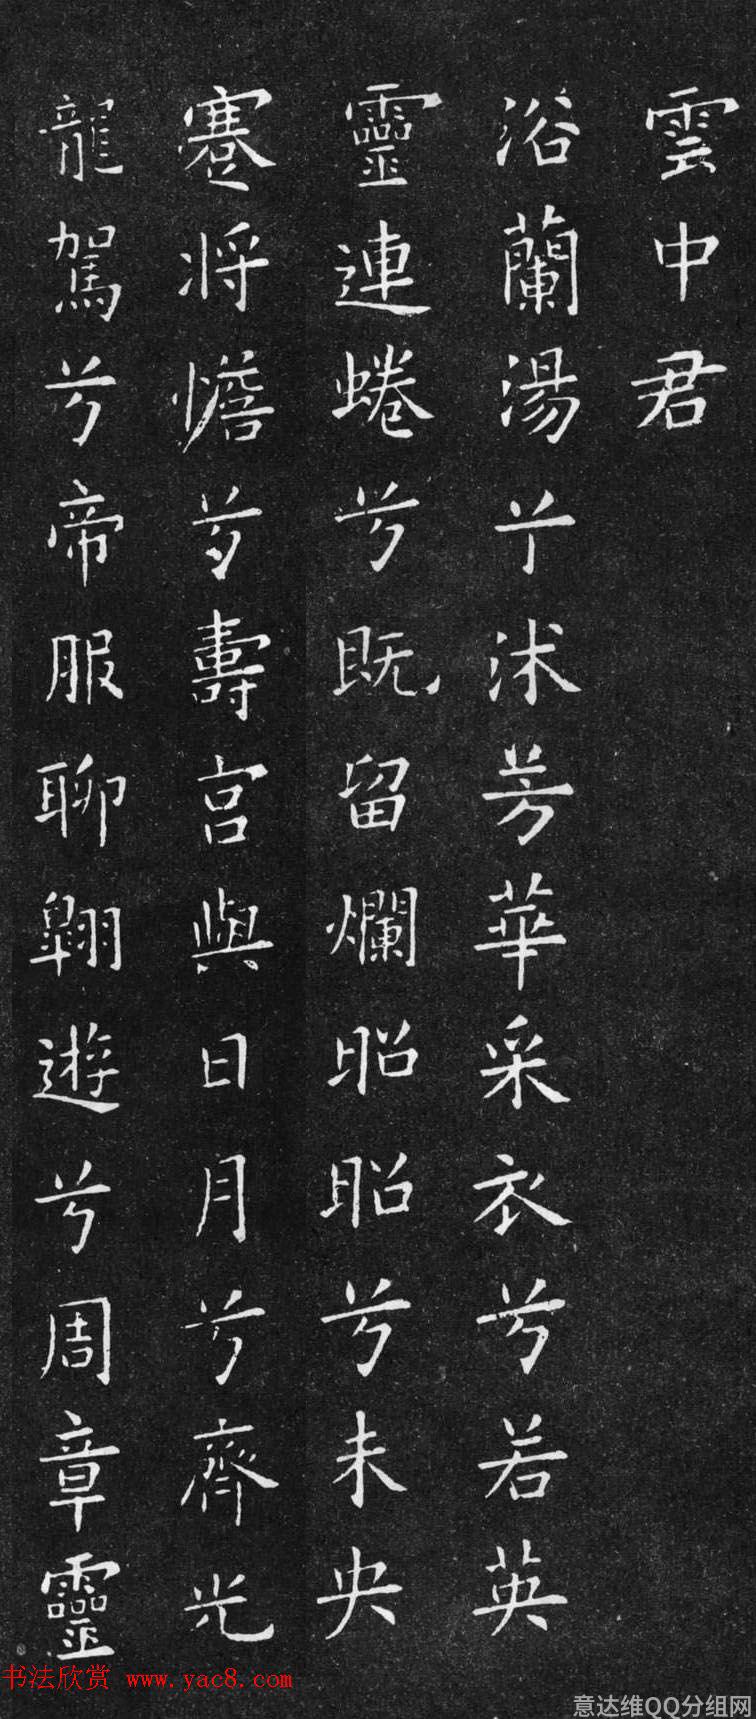 雲中君
浴蘭湯兮沐芳華采衣兮若英
靈連蜷兮既留爛昭昭兮未央
蹇將憺兮壽宮與日月兮齊光
龍駕兮帝服聊翱遊兮周章靈
书法欣赏 www.yac8.com
意达维QQ分组网